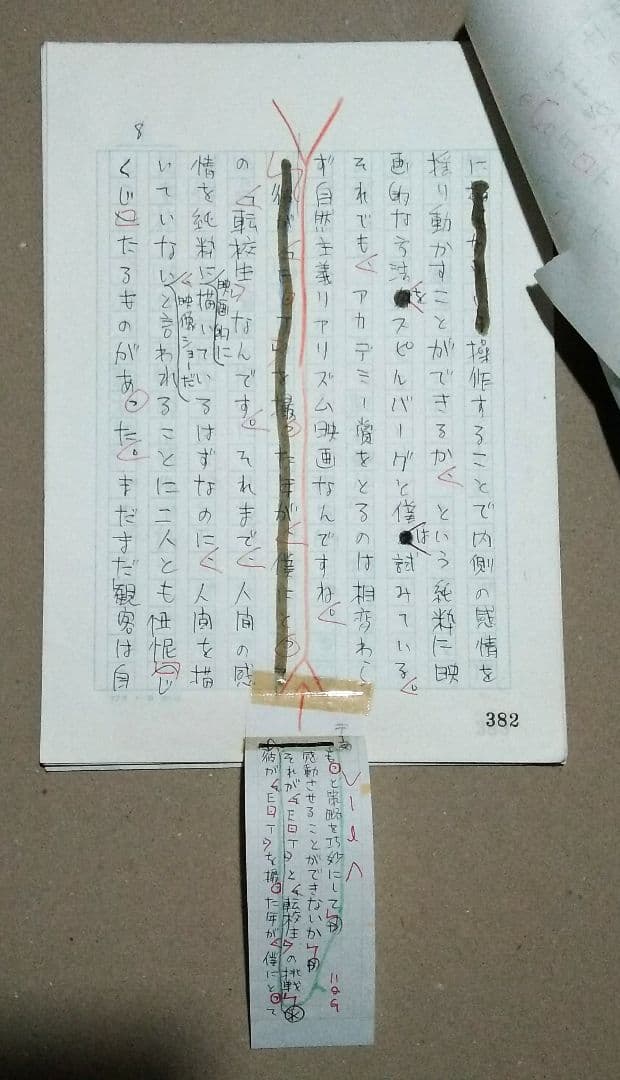 操作することで内側の感情を
揺り動かすことができるか、という純粋に映
画的な方法をスピルバーグと僕は試みている。
それでも、アカデミー賞をとるのは相変わら
ず自然主義リアリズム映画なんですね。
の『転校生』なんです。それまで、人間の感
情を純粋に映画的に描いているはずなのに、人間を描
いていない、映像ショーだと言われることに二人とも忸怩
くじたるものがあった。まだまだ観客は自
382
8
もっと策略を巧妙にして
感動させることができないか
それが『E・T』と『転校生』の挑戦
彼が『E・T』を撮った年が、僕にとって